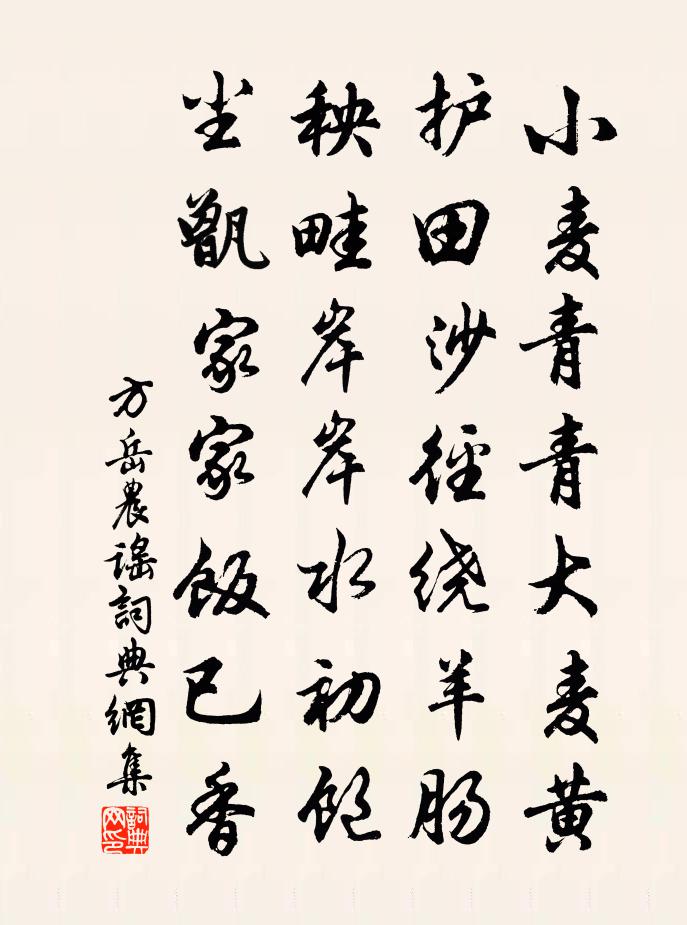 小麦青青大麦黄
护田沙径绕羊肠
秧畦岸岸水初饱
尘甑家家饭已香
方岳農謠詞典網集
詞典网印